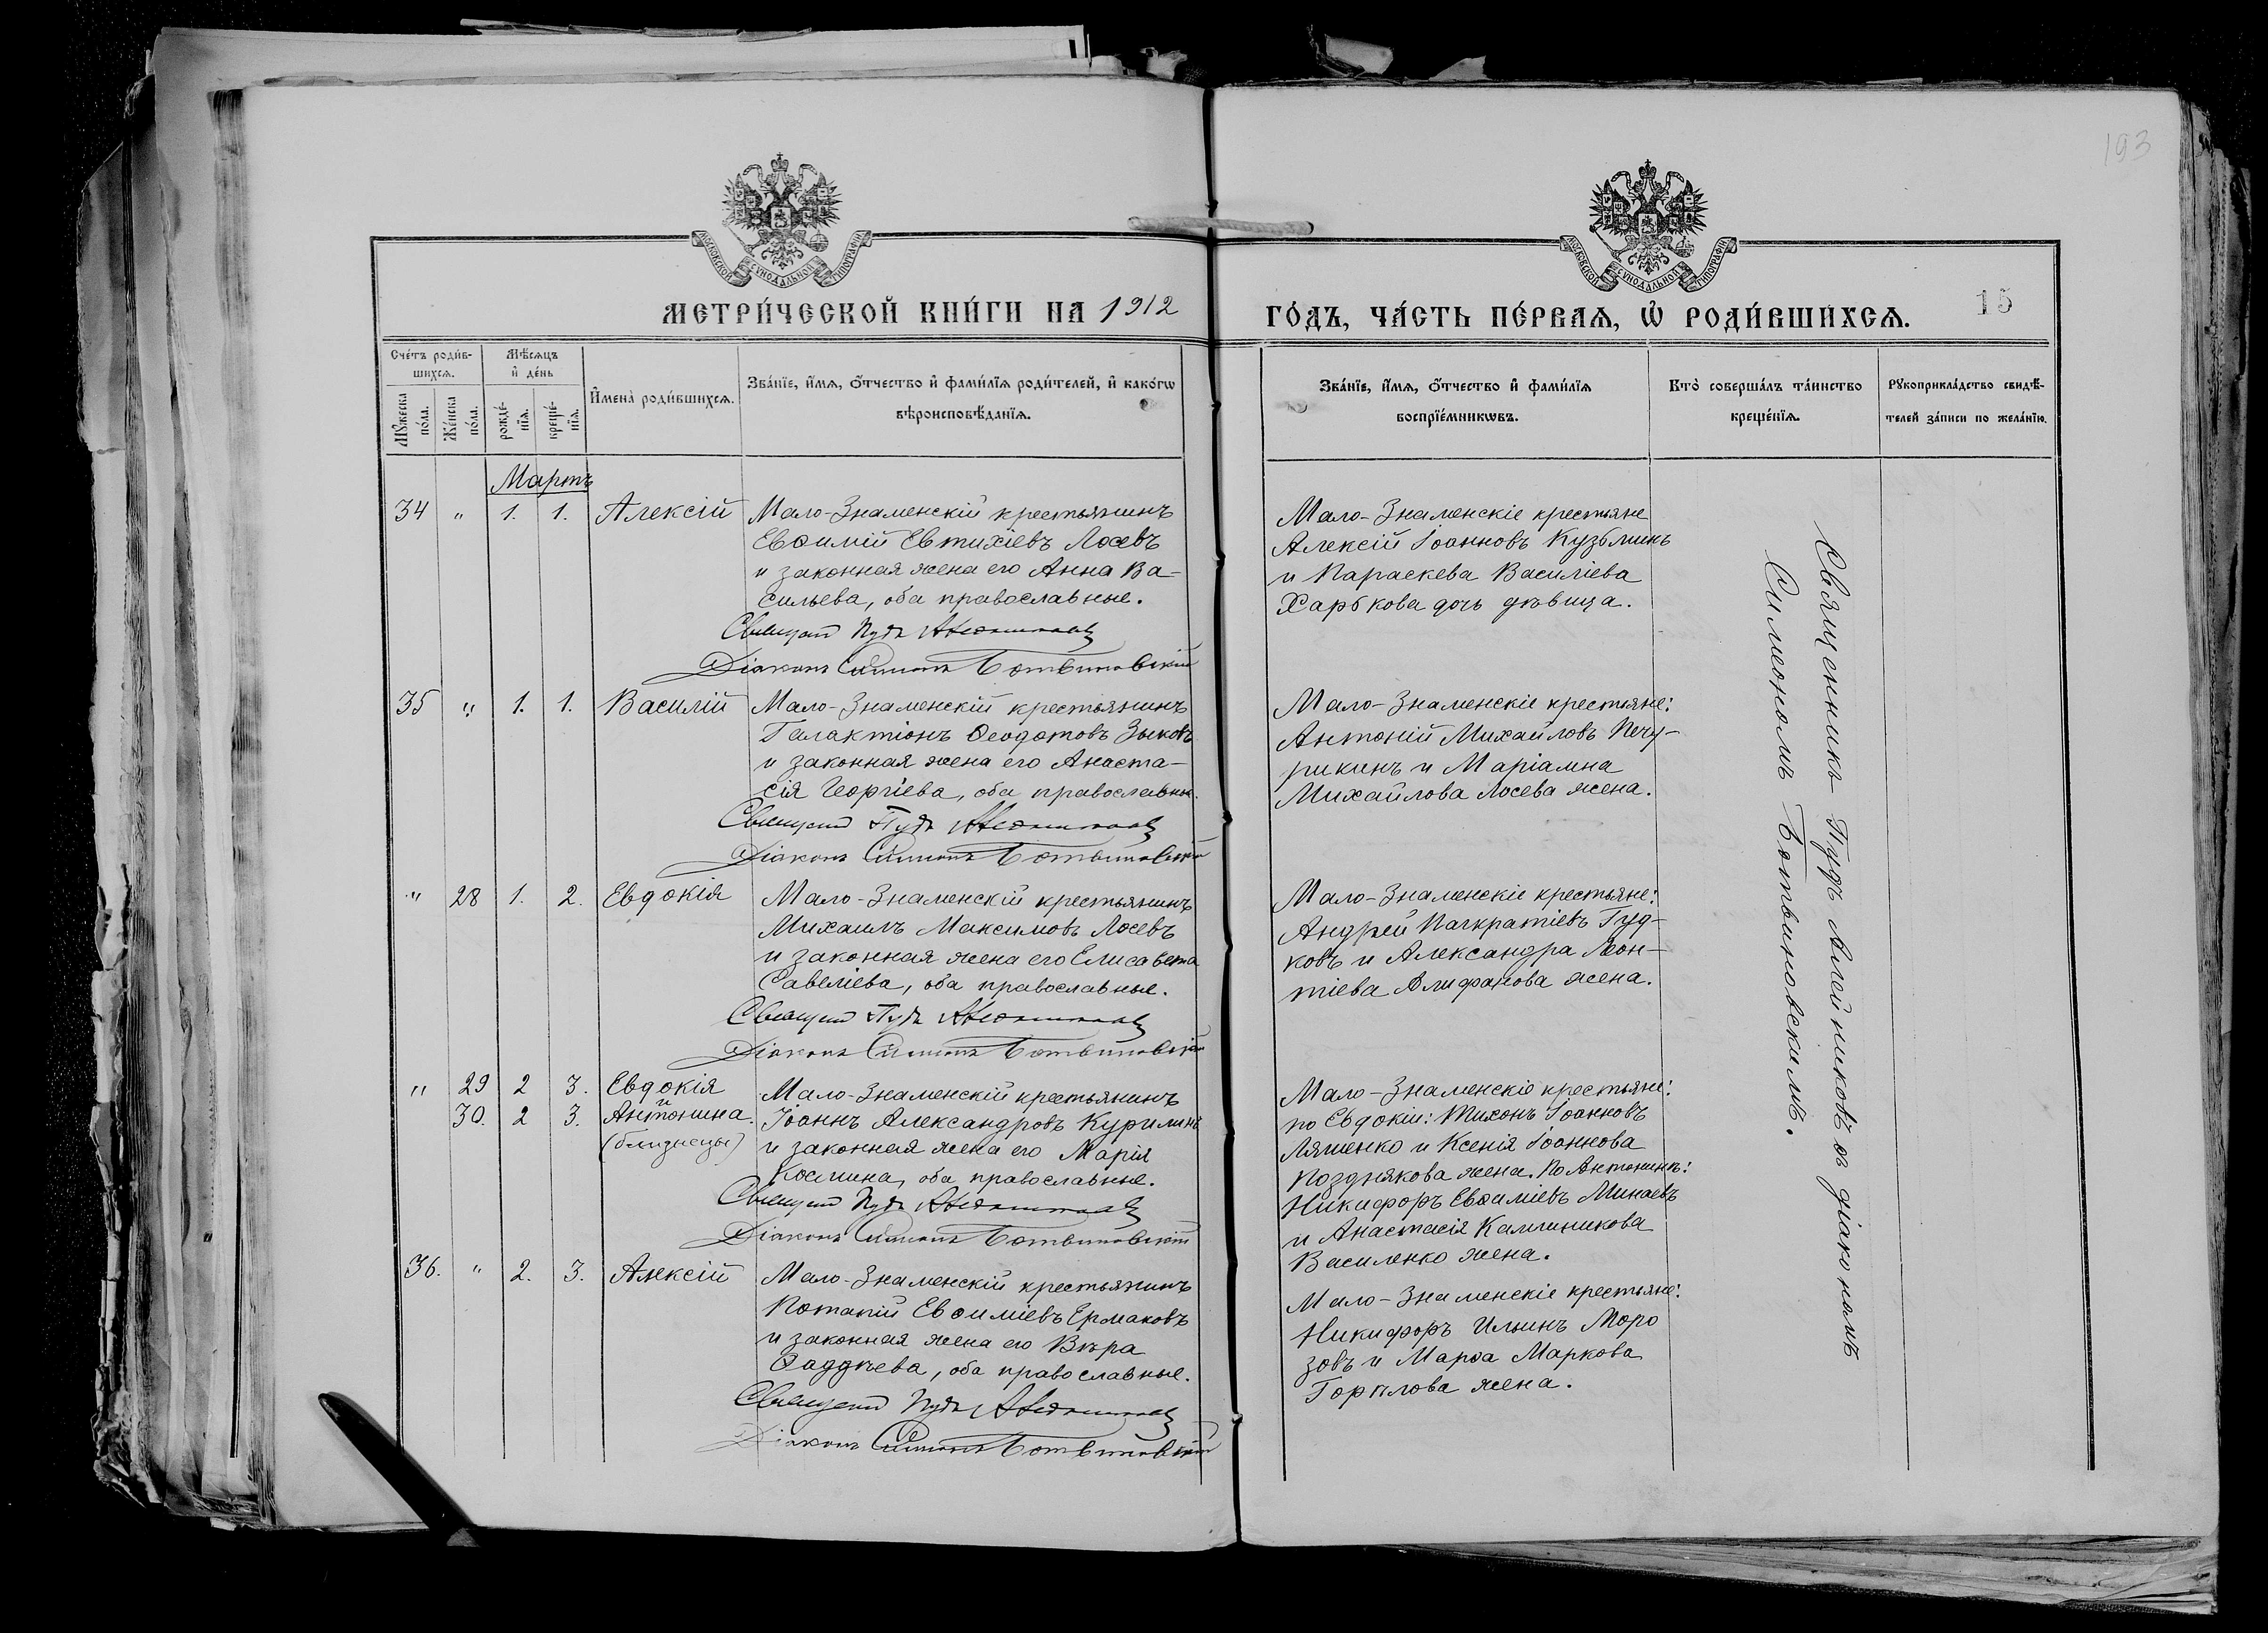 193
МОСКОВСКОЙ СУНОДАЛЬНОЙ ТИПОГРАФІИ
МОСКОВСКОЙ СУНОДАЛЬНОЙ ТИПОГРАФІИ
МЕТРИ́ЧЕСКОЙ КНИ́ГИ НА 1912
ГО́ДЪ, ЧА́СТЬ ПЕ́РВАѦ, Ѡ҆ РОДИ́ВШИХСѦ.
15
Сче́тъ роди́в-
шихсѧ.
Мꙋ́жеска
по́ла.
Же́нска
по́ла.
Мѣ́сѧцъ
и҆ де́нь
рожде́-
нїѧ.
креще́-
нїѧ.
И҆мена̀ роди́вшихсѧ.
Зва́нїе, и҆́мѧ, ѻ҆́тчество и҆ фами́лїѧ роди́телей, и҆ како́гѡ
вѣроисповѣ́данїѧ.
Зва́нїе, и҆́мѧ, ѻ҆́тчество и҆ фами́лїѧ
воспрїе́мникѡвъ.
Кто̀ соверша́лъ та́инство
креще́нїѧ.
Рꙋкоприкла́дство свидѣ́-
телей за́писи по жела́нїю.
Мартъ
34 " 1. 1. Алексій
Мало-Знаменскій крестьянинъ
Евѳимій Евтихіевъ Лосевъ
и законная жена его Анна Ва-
сильева, оба православные.
Священ Пудъ
Діаконъ Симеонъ Ботвиновскій
Мало-Знаменскіе крестьяне
Алексій Іоанновъ Кузьминъ
и Параскева Василіева
Харькова дочь дѣвица.
35 " 1. 1. Василій
Мало-Знаменскій крестьянинъ
Галактіонъ Ѳеодотовъ Зыковъ
и законная жена его Анаста-
сія Георгіева, оба православны.
Священ Пудъ
Діаконъ Симеонъ Ботвиновскій
Мало-Знаменскіе крестьяне:
Антоній Михайловъ Печу-
рикинъ и Маріамна
Михайлова Лосева жена.
" 28 1. 2. Евдокія
Мало-Знаменскій крестьянинъ
Михаилъ Максимовъ Лосевъ
и законная жена его Елисавета
Савеліева, оба православные.
Священ Пудъ
Діаконъ Симеонъ Ботвиновскій
Мало-Знаменскіе крестьяне:
Андрей Панкратіевъ Гуд-
ковъ и Александра Леон-
тіева Алифанова жена.
" 29 2 3. Евдокія
и
30. 2 3. Антонина.
(близнецы)
Мало-Знаменскій крестьянинъ
Іоаннъ Александровъ Курилинъ
и законная жена его Марія
Космина, оба православные.
Священ Пудъ
Діаконъ Симеонъ Ботвиновскій
Мало-Знаменскіе крестьяне:
по Евдокіи: Тихонъ Іоанновъ
Ляшенко и Ксенія Іоаннова
Позднякова жена. По Антонинѣ:
Никифоръ Евѳиміевъ Минаевъ
и Анастасія Каллиникова
Василенко жена.
36. " 2. 3. Алексій
Мало-Знаменскій крестьянинъ
Потапій Евѳиміевъ Ермаковъ
и законная жена его Вѣра
Ѳаддѣева, оба православные.
Священ Пудъ
Діаконъ Симеонъ Ботвиновскій
Мало-Знаменскіе крестьяне:
Никифоръ Ильинъ Моро
зовъ и Марѳа Маркова
Горѣлова жена.
Священникъ Пудъ Алейниковъ съ діакономъ
Симеономъ Ботвиновскимъ.